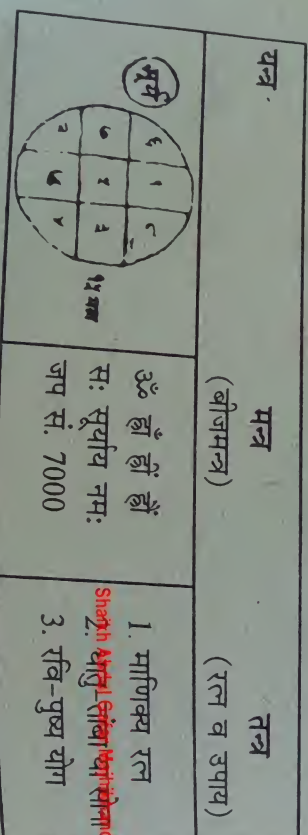 यन्त्र
मन्त्र
(बीजमन्त्र)
तन्त्र
(रत्न व उपाय)
सूर्य
६ १ ८
७ ५ ३
२ ९ ४
ॐ ह्राँ ह्रीं ह्रौं
सः सूर्याय नमः
जप सं. 7000
1. माणिक्य रत्न
2. धातु-तांबा या सोना
3. रवि-पुष्य योग
Shaikh Abdul